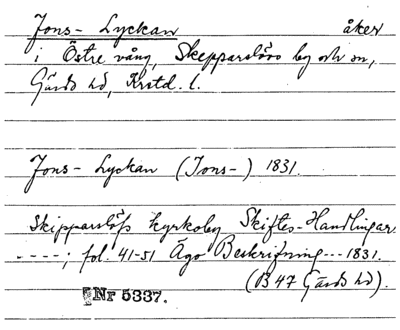 Jons-Lyckan åker
i Östre vång, Skepparslövs by och sn,
Gärds hd, Krstd. l.
Jons-Lyckan (Jons-) 1831.
Skipparslöfs kyrkoby Skiftes-Handlingar.
----; fol. 41-51 Ägo Beskrifning --- 1831.
(B 47 Gärds hd).
Nr 5337.